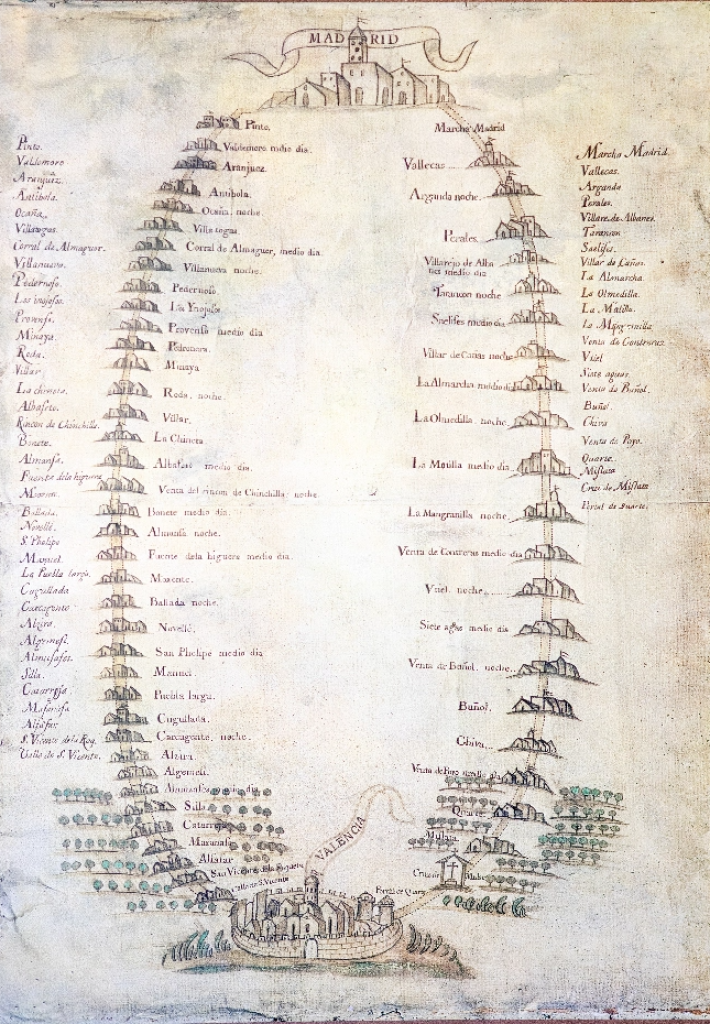 MADRID
Pinto.
Valdemoro
Aranjuez.
Antibola.
Ocaña,
Villatogas.
Corral de Almaguer.
Villanueva.
Pedernoso.
Los inojosos.
Provensa.
Minaya.
Roda.
Villar
La chineta.
Albasete.
Rincon de Chinchilla.
Bonete.
Almansa.
Fuente dela higuera
Moxent.
Ballada.
Novellé.
S. Phelipe
Manuel.
La Puebla larga.
Cugullada
Carcagente
Alzira.
Algemesí.
Almusafes.
Silla.
Catarroja.
Masanasa
Alfafar
S. Vicente dela Roq.
Calle de S. Vicente.
Pinto.
Valdemoro medio dia.
Aranjuez.
Antibola.
Ocaña, noche.
Villa togas.
Corral de Almaguer, medio dia
Villanueva noche.
Pedernoso.
Las Ynojosas.
Provensa medio dia
Pedronera.
Minaya
Roda. noche.
Villar.
La Chineta
Albasete medio dia.
Venta del rincon de Chinchilla. noche.
Bonete medio dia.
Almansa noche.
Fuente dela higuera medio dia.
Moxente.
Ballada noche.
Novellé.
San Phelipe medio dia
Manuel.
Puebla larga.
Cugullada.
Carcagente. noche.
Alzira.
Algemesí.
Almusafes medio dia
Silla
Catarroja
Masanasa
Alfafar
San Vicente dela Roqueta
Calle de S. Vicente
Marcha Madrid
Vallecas
Arganda noche.
Perales.
Villarejo de Alba
nes medio dia
Tarancon noche
Saelises medio dia
Villar de Cañas noche
La Almarcha medio dia
La Olmedilla. noche.
La Motilla medio dia
La Mangranilla noche.
Venta de Contreras medio dia
Vtiel noche
Siete aguas medio dia
Venta de Buñol. noche.
Buñol.
Chiva.
Venta de Poyo medio dia
Quarte
Mislata
Cruz de Mislata
Portal de Quarte
VALENCIA
Marcha Madrid.
Vallecas.
Arganda
Perales.
Villare. de Albanes.
Tarancon
Saelises.
Villar de Cañas.
La Almarcha.
La Olmedilla.
La Motilla.
La Mangranilla
Venta de Contreras
Vtiel
Siete aguas.
Venta de Buñol.
Buñol
Chiva
Venta de Poyo.
Quarte.
Mislata
Cruz de Mislata
Portal de Quarte.